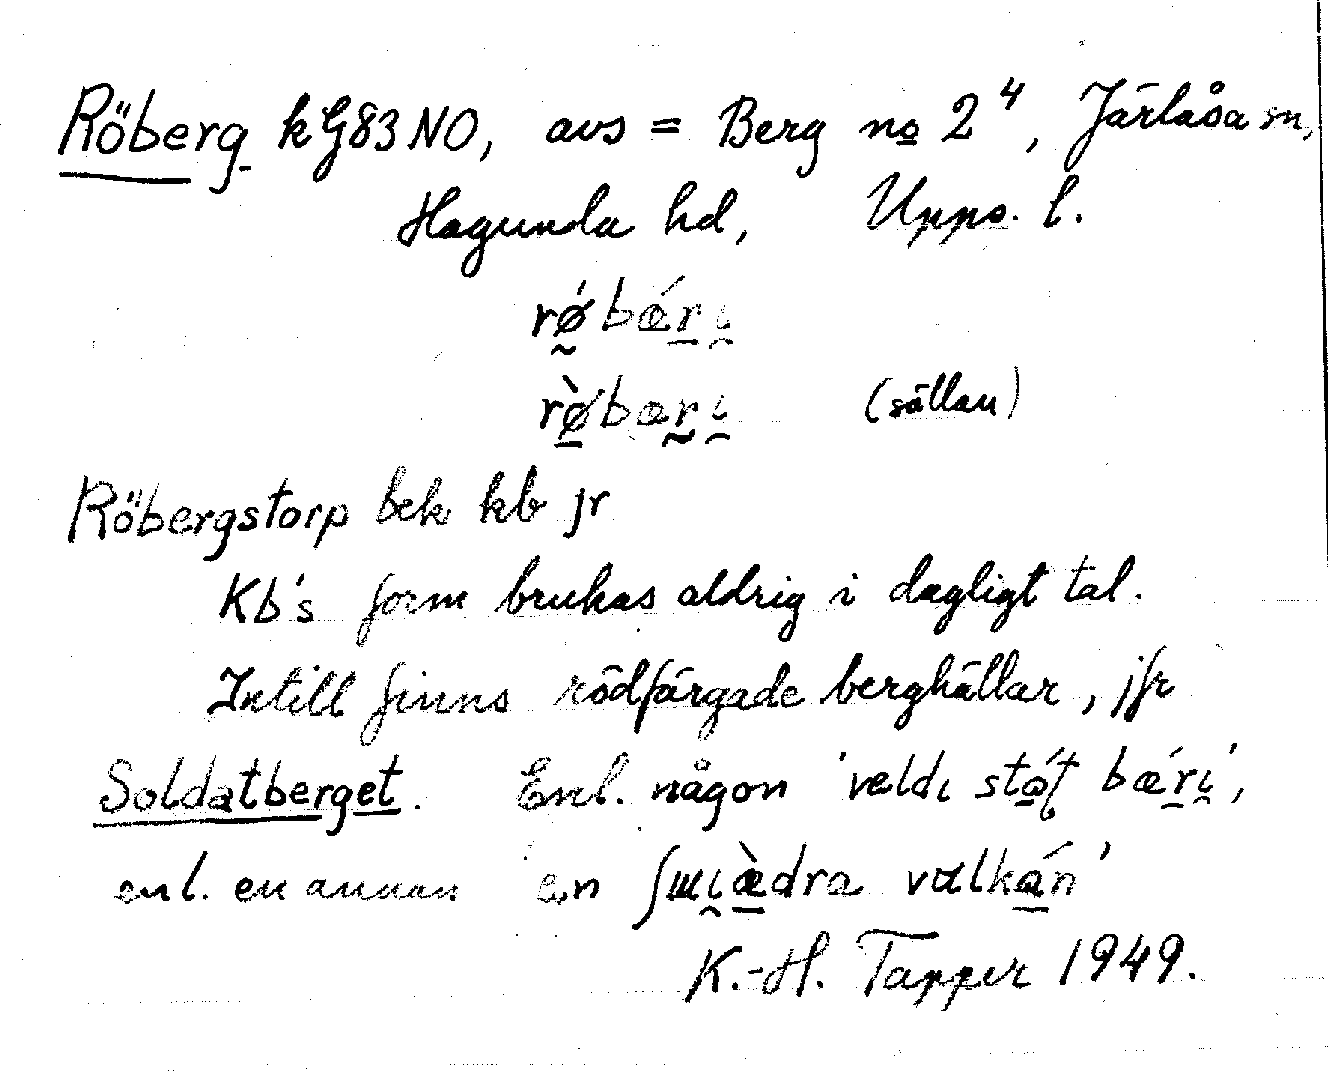 Röberg kG83NO, avs = Berg no 2⁴, Järlåsa sn,
Hagunda hd, Upps. l.
rǿbǽri
rø̀bæri (sällan)
Röbergstorp bek kb jr
Kb's form brukas aldrig i dagligt tal.
Intill finns rödfärgade berghällar, jfr
Soldatberget. Enl. någon 'veldı stóʈ bǽri',
enl. en annan 'en ʃɯiæ̀dra vulkán'
K.-H. Tapper 1949.